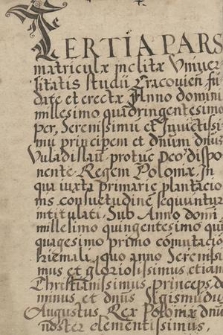 TERTIA PARS
matriculæ inclitæ Univer
sitatis studii Cracovien̄ fū
date et erectæ Anno domini
millesimo quadringentesimo
per, Serenissimū et Invictissi
mū principem et dn̄um dn̄us
Vuladislaū protuc̄ Deo dispo
nente Regem Poloniæ, In
qua iuxta primariæ plantacio
nis consuetudinē sequuntur
intitulati. Sub Anno domi
millesimo quingentesimo qua
quagesimo primo comutacio
hiemali, quo anno Serenissi
mus et gloriosissimus etiam
Christianissimus princeps do
minus et dn̄us Sigismūdus
Augustus, Rex Poloniæ dn̄us
noster clementissimus